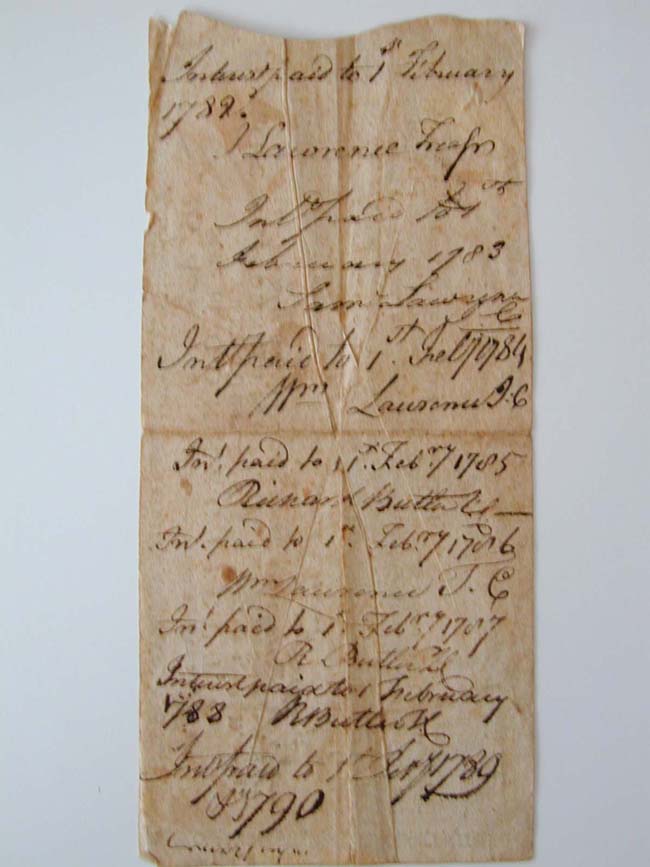 Interest paid to 1st February
1782.
J Lawrence Treasr
Intt paid to 1st
February 1783
Saml Lawrence
Intt paid to 1st. Feby 1784
Wm Lawrence J. C
Int. paid to 1st. Febry 1785
Richard Butler
Int. paid to 1st. Febry 1786
Wm Lawrence J. C
Int. paid to 1st. Febry 1787
R Butler
Interest paid to 1 February
1788 R Butler
Intt paid to 1st Feby 1789
& 1790